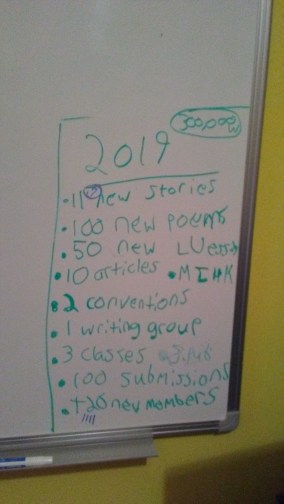 300,000w
2019
• 11 new stories
• 100 new poems
• 50 new
• 10 articles • MIHK
• 2 conventions
• 1 writing group
• 3 classes
• 100 submissions
• +20 new members